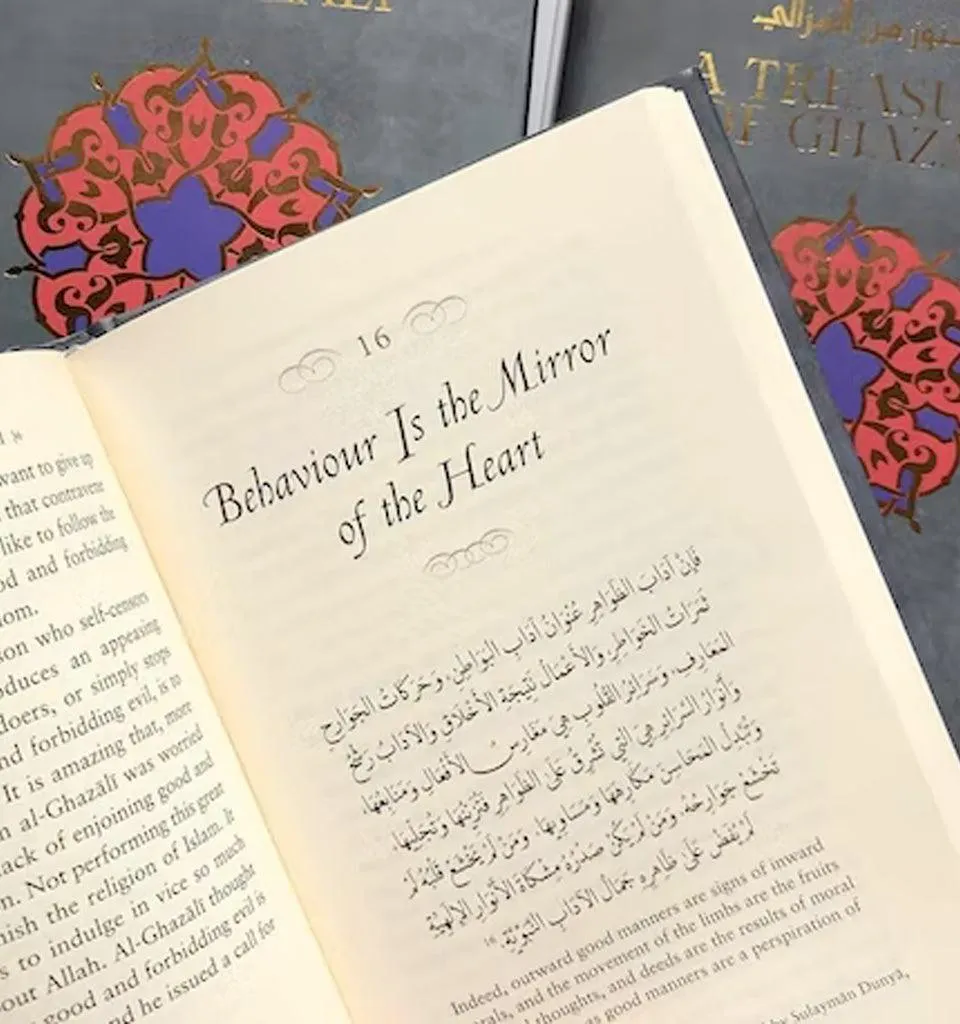 كنوز من الغزالي
A TREASU
OF GHAZA
want to give up
that contravene
like to follow the
od and forbidding
om.
on who self-censors
oduces an appeasing
doers, or simply stops
nd forbidding evil, is to
It is amazing that, more
n al-Ghazālī was worried
lack of enjoining good and
n. Not performing this great
nish the religion of Islam. It
s to indulge in vice so much
out Allah. Al-Ghazālī thought
good and forbidding evil is
nd he issued a call for
16
Behaviour Is the Mirror
of the Heart
فَإِنَّ آدَابَ الظَّوَاهِرِ عُنْوَانُ آدَابِ البَوَاطِنِ، وَحَرَكَاتُ الجَوَارِحِ
ثَمَرَاتُ الخَوَاطِرِ وَالأَعْمَالُ نَتِيجَةُ الأَخْلَاقِ وَالآدَابُ رَشْحُ
المَعَارِفِ، وَسَرَائِرُ القُلُوبِ هِيَ مَغَارِسُ الأَفْعَالِ وَمَنَابِعُهَا،
وَأَنْوَارُ السَّرَائِرِ هِيَ الَّتِي تُشْرِقُ عَلَى الظَّوَاهِرِ فَتُزَيِّنُهَا وَتُحَلِّيهَا
وَتُبَدِّلُ المَحَاسِنَ مَكَارِهَهَا وَمَسَاوِيَهَا. وَمَنْ لَمْ يَخْشَعْ قَلْبُهُ لَمْ
تَخْشَعْ جَوَارِحُهُ، وَمَنْ لَمْ يَكُنْ صَدْرُهُ مِشْكَاةَ الأَنْوَارِ الإِلَهِيَّةِ
لَمْ يَفِضْ عَلَى ظَاهِرِهِ جَمَالُ الآدَابِ النَّبَوِيَّةِ.
Indeed, outward good manners are signs of inward
and the movement of the limbs are the fruits
thoughts, and deeds are the results of moral
good manners are a perspiration of
by Sulaymān Dunyā,